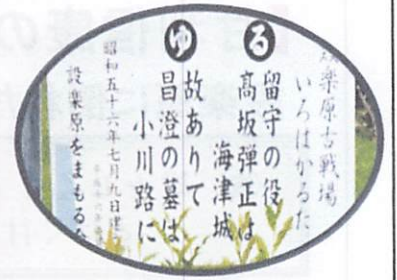 設楽原古戦場
いろはかるた
る
留守の役
髙坂弾正は
海津城
ゆ
故ありて
昌澄の墓は
小川路に
昭和五十六年七月九日建
設楽原をまもる